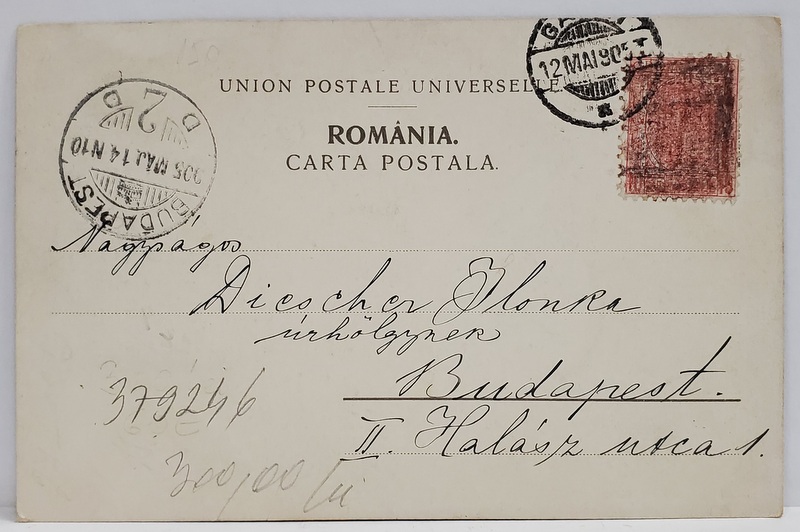 UNION POSTALE UNIVERSELLE
ROMÂNIA.
CARTA POSTALA.
12 MAI 905
BUDAPEST
905 MÁJ. 14 N10
2
D D
Nagyságos
Diescher Ilonka
úrhölgynek
Budapest.
II. Halász utca 1.
379246
300,00 lei